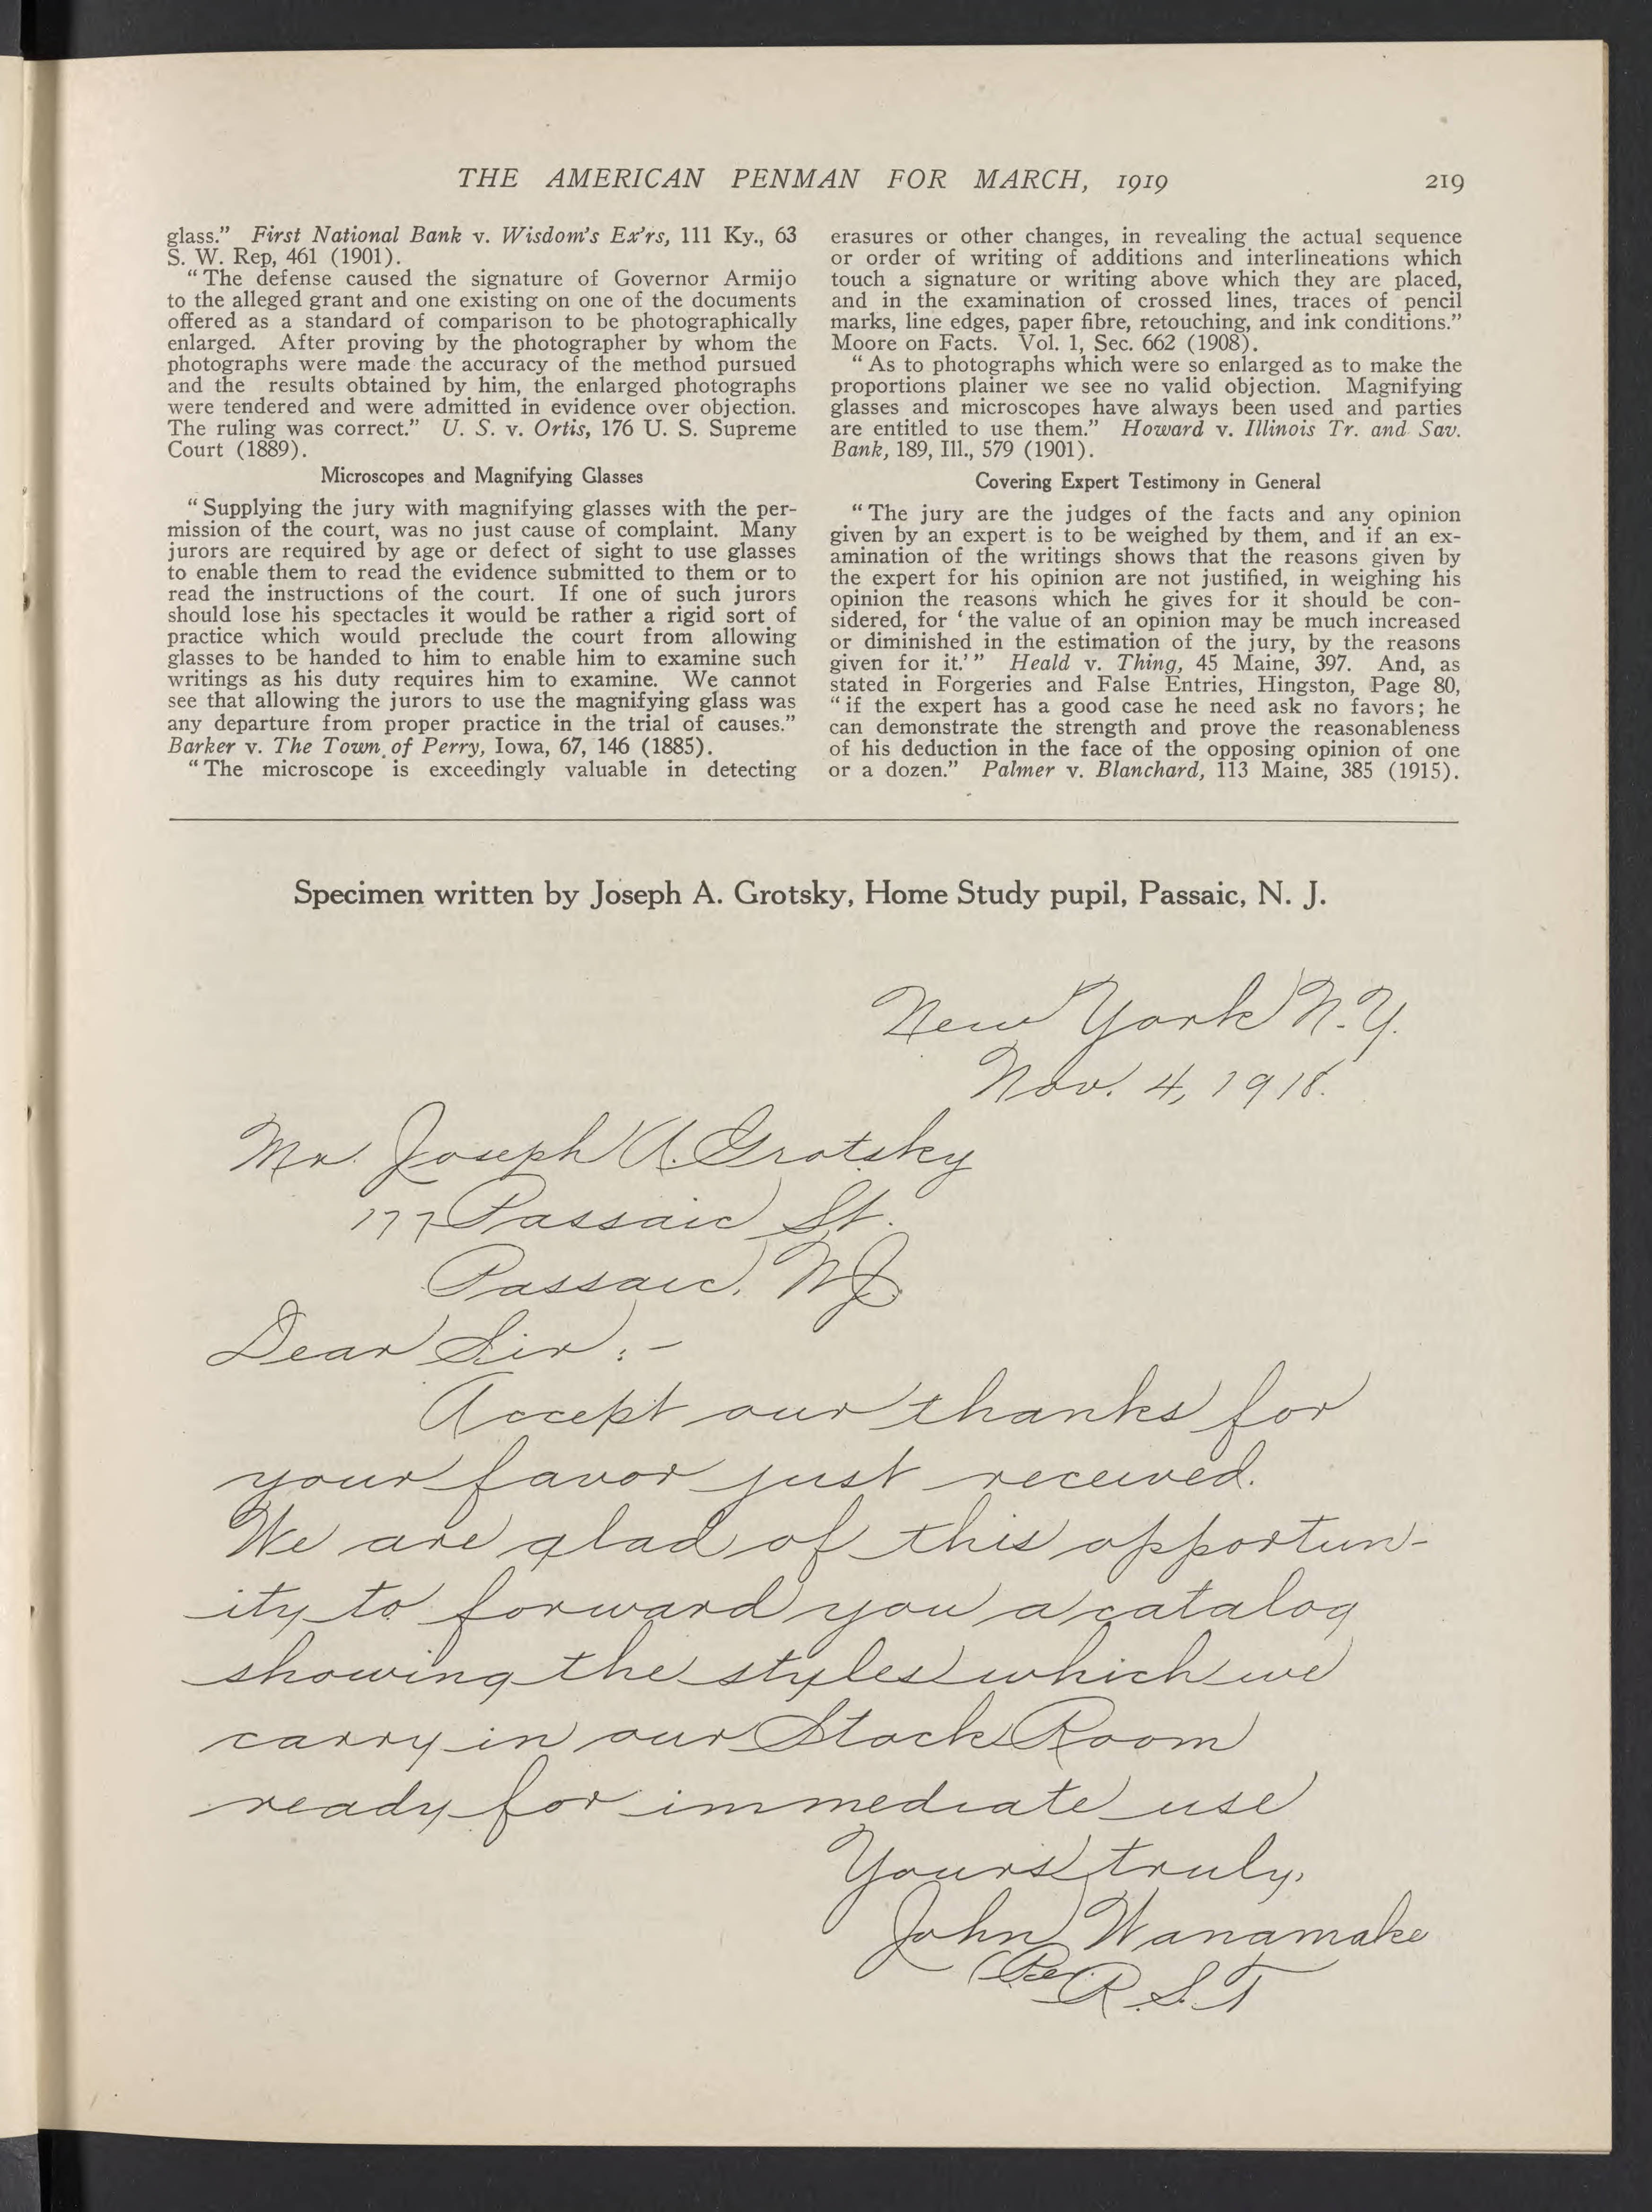 THE AMERICAN PENMAN FOR MARCH, 1919 219
glass." First National Bank v. Wisdom's Ex'rs, 111 Ky., 63
S. W. Rep, 461 (1901).
"The defense caused the signature of Governor Armijo
to the alleged grant and one existing on one of the documents
offered as a standard of comparison to be photographically
enlarged. After proving by the photographer by whom the
photographs were made the accuracy of the method pursued
and the results obtained by him, the enlarged photographs
were tendered and were admitted in evidence over objection.
The ruling was correct." U. S. v. Ortis, 176 U. S. Supreme
Court (1889).
Microscopes and Magnifying Glasses
"Supplying the jury with magnifying glasses with the per-
mission of the court, was no just cause of complaint. Many
jurors are required by age or defect of sight to use glasses
to enable them to read the evidence submitted to them or to
read the instructions of the court. If one of such jurors
should lose his spectacles it would be rather a rigid sort of
practice which would preclude the court from allowing
glasses to be handed to him to enable him to examine such
writings as his duty requires him to examine. We cannot
see that allowing the jurors to use the magnifying glass was
any departure from proper practice in the trial of causes."
Barker v. The Town of Perry, Iowa, 67, 146 (1885).
"The microscope is exceedingly valuable in detecting
erasures or other changes, in revealing the actual sequence
or order of writing of additions and interlineations which
touch a signature or writing above which they are placed,
and in the examination of crossed lines, traces of pencil
marks, line edges, paper fibre, retouching, and ink conditions."
Moore on Facts. Vol. 1, Sec. 662 (1908).
"As to photographs which were so enlarged as to make the
proportions plainer we see no valid objection. Magnifying
glasses and microscopes have always been used and parties
are entitled to use them." Howard v. Illinois Tr. and Sav.
Bank, 189, Ill., 579 (1901).
Covering Expert Testimony in General
"The jury are the judges of the facts and any opinion
given by an expert is to be weighed by them, and if an ex-
amination of the writings shows that the reasons given by
the expert for his opinion are not justified, in weighing his
opinion the reasons which he gives for it should be con-
sidered, for 'the value of an opinion may be much increased
or diminished in the estimation of the jury, by the reasons
given for it.'" Heald v. Thing, 45 Maine, 397. And, as
stated in Forgeries and False Entries, Hingston, Page 80,
"if the expert has a good case he need ask no favors; he
can demonstrate the strength and prove the reasonableness
of his deduction in the face of the opposing opinion of one
or a dozen." Palmer v. Blanchard, 113 Maine, 385 (1915).
Specimen written by Joseph A. Grotsky, Home Study pupil, Passaic, N. J.
New York N.Y.
Nov. 4, 1918.
Mr. Joseph A. Grotsky
177 Passaic St.
Passaic, N J.
Dear Sir:-
Accept our thanks for
your favor just received.
We are glad of this opportun-
ity to forward you a catalog
showing the styles which we
carry in our Stock Room
ready for immediate use
Yours truly,
John Wanamake
Per R.S.T